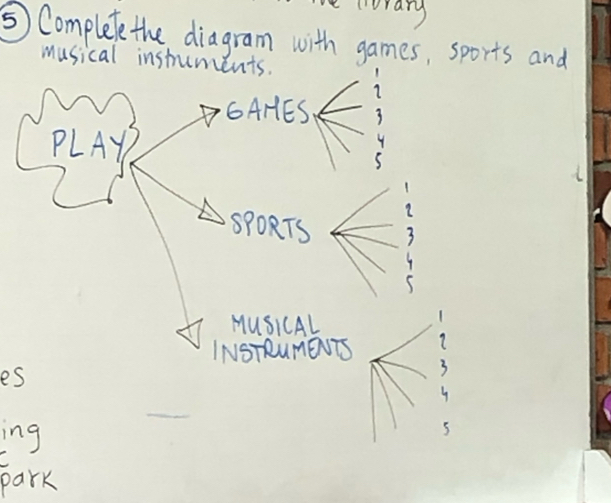 library
5 Complete the diagram with games, sports and
musical instruments.
PLAY
GAMES
1
2
3
4
5
SPORTS
1
2
3
4
5
MUSICAL
INSTRUMENTS
1
2
3
4
5
es
ing
park